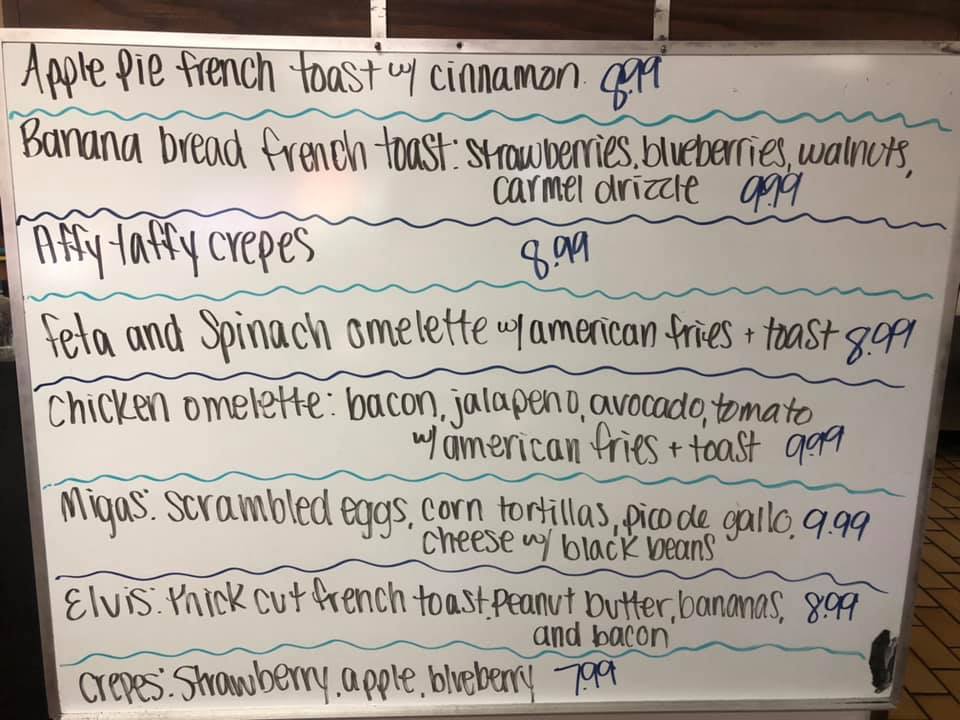 Apple Pie french toast w/ cinnamon. 8.99
Banana bread french toast: strawberries, blueberries, walnuts,
carmel drizzle 9.99
Affy taffy crepes 8.99
feta and Spinach omelette w/ american fries + toast 8.99
Chicken omelette: bacon, jalapeno, avocado, tomato
w/ american fries + toast 9.99
Migas: scrambled eggs, corn tortillas, pico de gallo, 9.99
cheese w/ black beans
Elvis: thick cut french toast, peanut butter, bananas, 8.99
and bacon
crepes: Strawberry, apple, blueberry 7.99